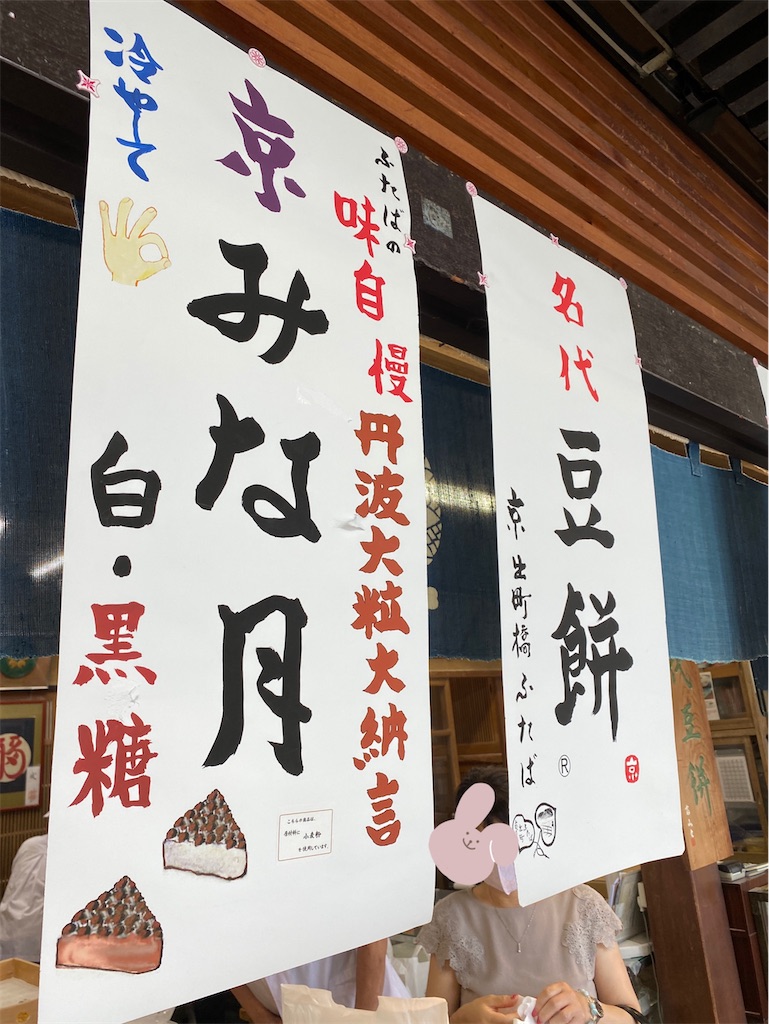 名代
豆餅
京出町橋ふたば
®
京
ふたばの
味自慢
丹波大粒大納言
京
みな月
冷やして
白・黒糖
こちらの商品は、
原材料に 小麦粉
を使用しています。
豆餅